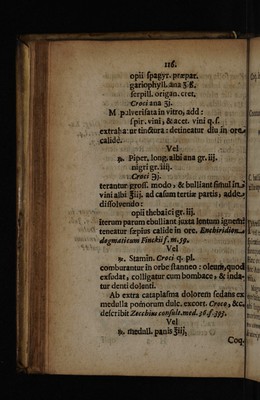 116.
opii spagyr. præpar.
gariophyll. ana ʒ ß.
serpill. origan. cret.
Croci ana ʒi.
M. pulverisata in vitro, add:
spir. vini, & acet. vini q. s.
extrahatur tinctura: detineatur diu in ore
calidè.
Vel
℞. Piper. long. albi ana gr. iij.
nigri gr. iiij.
Croci ℈j.
terantur gross. modo, & bulliant simul in
vini albi ℥iij. ad casum tertiæ partis, adde
dissolvendo:
opii thebaici gr. iij.
iterum parum ebulliant juxta lentum ignem:
teneatur sæpius calide in ore. Enchiridion
dogmaticum Finckii f. m. 59.
Vel
℞. Stamin. Croci q. pl.
comburantur in orbe stanneo: oleum, quod
exsudat, colligatur cum bombace, & inda-
tur denti dolenti.
Ab extra cataplasma dolorem sedans ex
medulla pomorum dulc. excort. Croco, &c.
describit Zecchius consult. med. 36 f. 393.
Vel
℞. medull. panis ℥iij.
Coq.